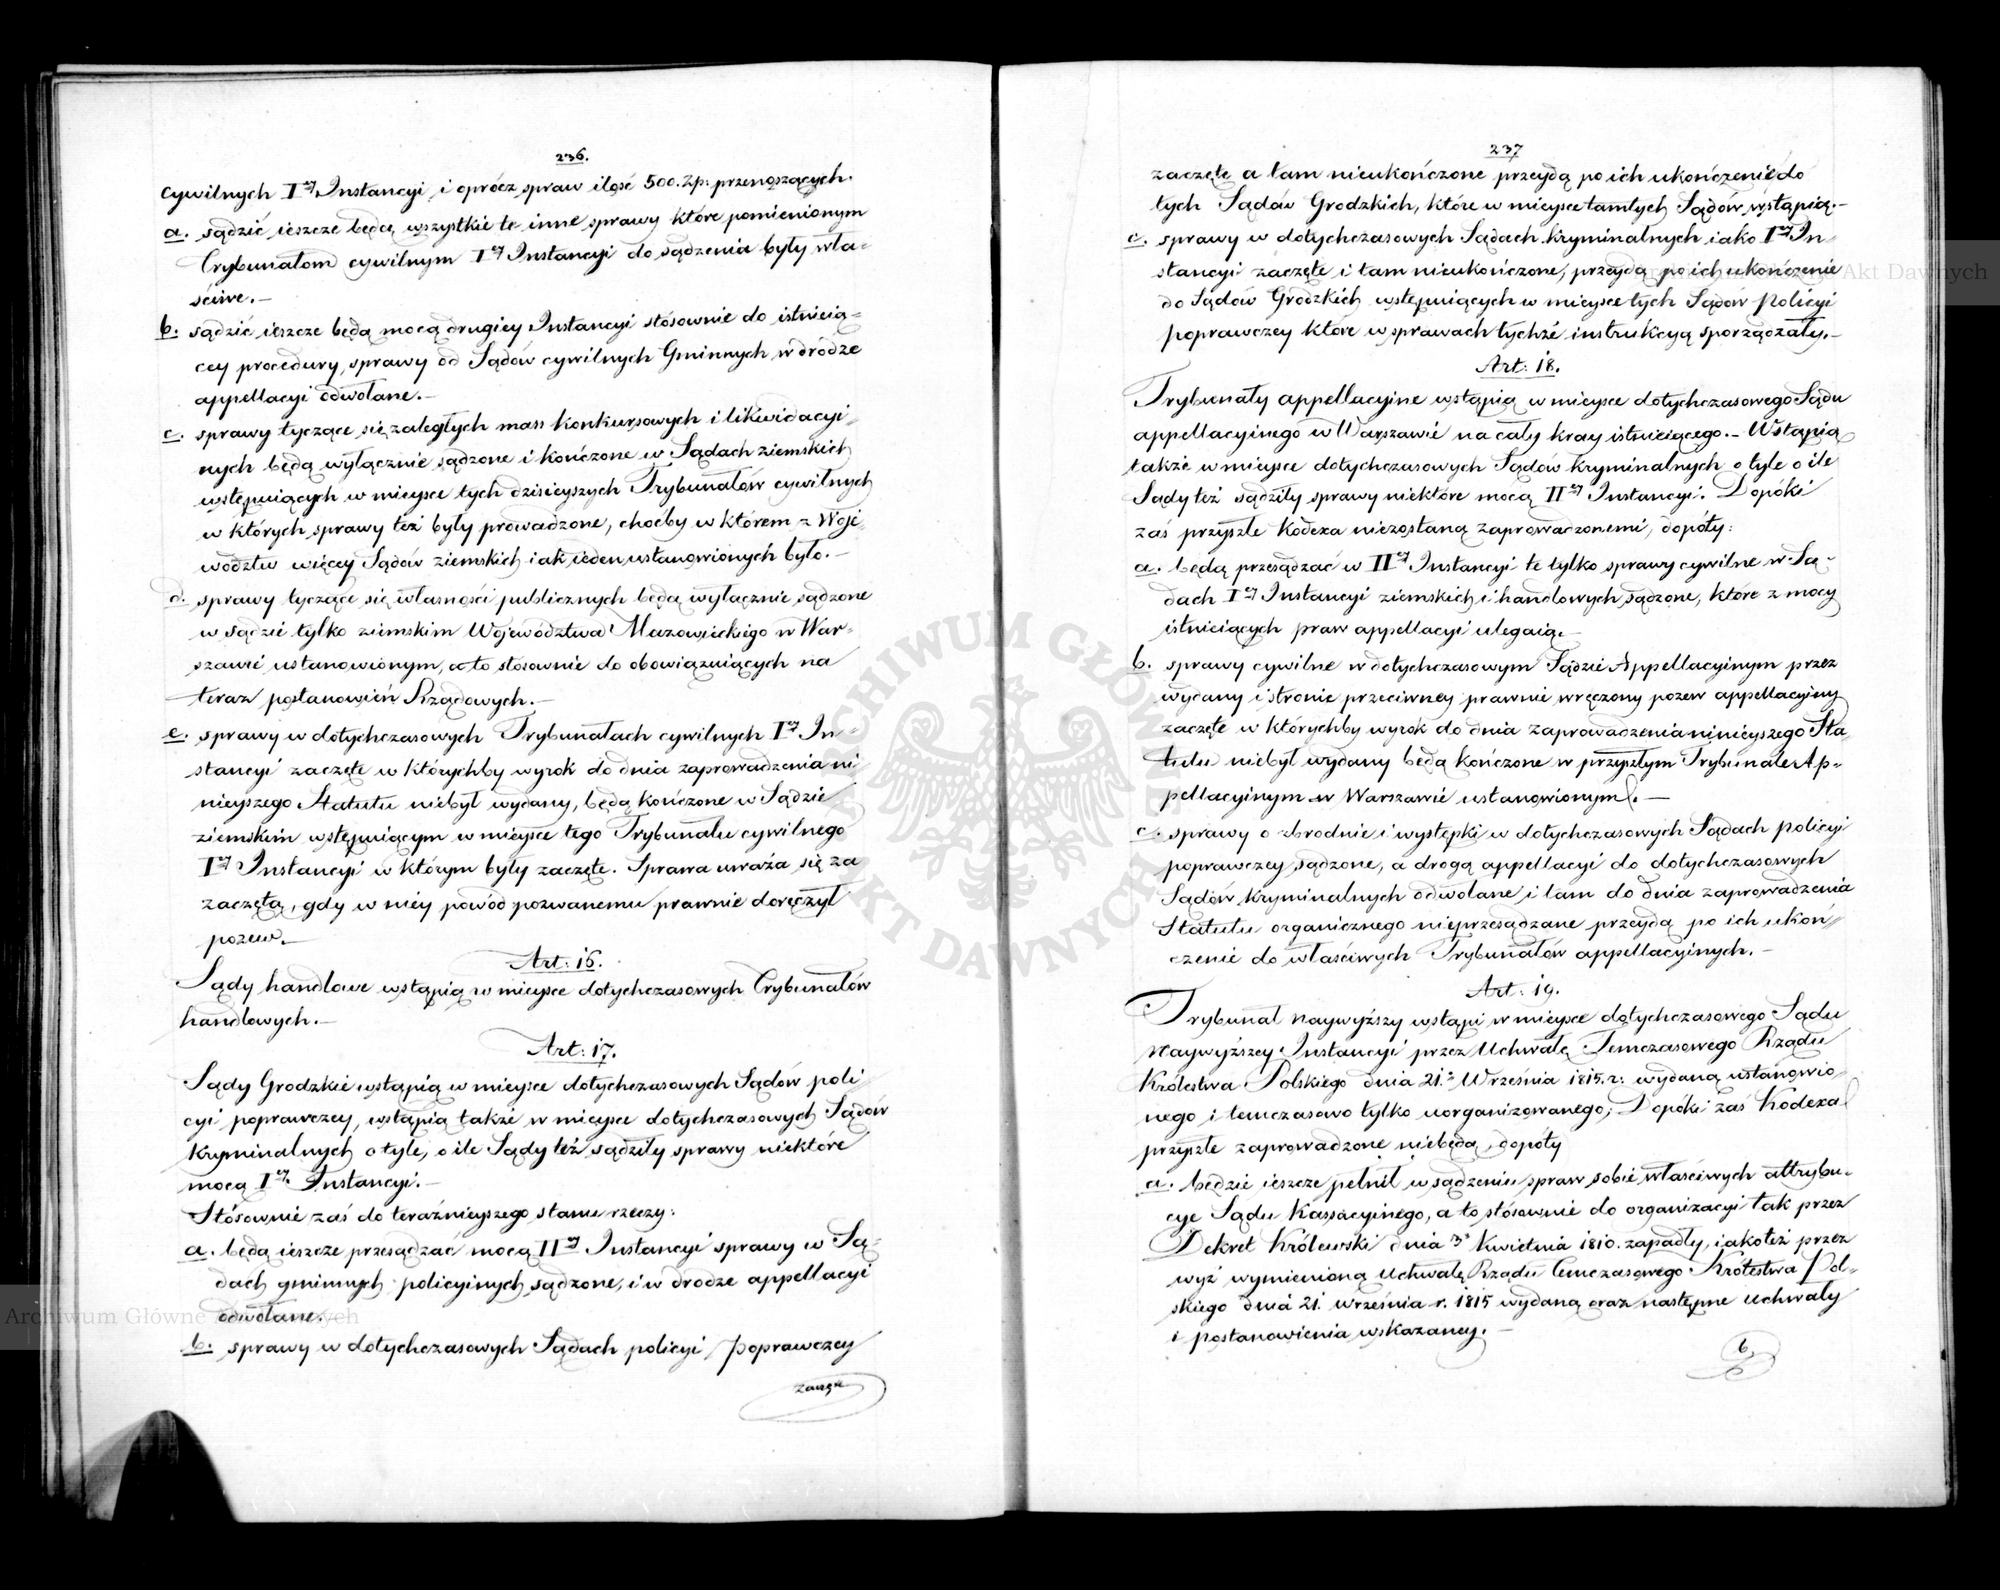 236.
cywilnych I<sup>ey</sup> Instancyi, i oprócz spraw ilość 500. Zp: przenoszących.
a. sądzić ieszcze będą wszystkie te inne sprawy które pomienionym
Trybunałom cywilnym I<sup>ey</sup> Instancyi do sądzenia były wła-
ściwe.-
b. sądzić ieszcze będą mocą drugiey Instancyi stósownie do istnieią-
cey procedury, sprawy od Sądów cywilnych Gminnych w drodze
appellacyi odwołane.-
c. sprawy tyczące się zaległych mass konkursowych i likwidacyi-
nych będą wyłącznie sądzone i kończone w Sądach ziemskich
wstępuiących w mieysce tych dzisieyszych Trybunałów cywilnych
w których sprawy też były prowadzone, choćby w którem z Woje-
wództw więcey Sądów ziemskich iak ieden ustanowionych było.-
d. sprawy tyczące się własności publicznych będą wyłącznie sądzone
w sądzie tylko ziemskim Województwa Mazowieckiego w War-
szawie ustanowionym, a to stosownie do obowiązuiących na
teraz postanowień Rządowych.-
e. sprawy w dotychczasowych Trybunałach cywilnych I<sup>ey</sup> In-
stancyi zaczęte w którychby wyrok do dnia zaprowadzenia ni
nieyszego Statutu niebył wydany, będą kończone w Sądzie
ziemskim wstępuiącym w mieysce tego Trybunału cywilnego
I<sup>ey</sup> Instancyi w którym były zaczęte. Sprawa uważa się za
zaczętą, gdy w niey powód pozwanemu prawnie doręczył
pozew.-
Art: 16.
Sądy handlowe wstąpią w mieysce dotychczasowych Trybunałów
handlowych.-
Art: 17.
Sądy Grodzkie wstąpią w mieysce dotychczasowych Sądów poli
cyi poprawczey, wstąpią także w mieysce dotychczasowych Sądów
kryminalnych o tyle, o ile Sądy też sądziły sprawy niektóre
mocą I<sup>ey</sup> Instancyi.-
Stósownie zaś do teraźnieyszego stanu rzeczy:
a. będą ieszcze przesądzać mocą II<sup>ey</sup> Instancyi sprawy w Są-
dach gminnych policyinych sądzone, i w drodze appellacyi
odwołane.
b. sprawy w dotychczasowych Sądach policyi poprawczey
zaczęte
237
zaczęte a tam nieukończone przeydą po ich ukończenie do
tych Sądów Grodzkich, które w mieysce tamtych Sądów wstąpią.-
c. sprawy w dotychczasowych Sądach kryminalnych iako I<sup>ey</sup> In-
stancyi zaczęte i tam nieukończone, przeydą po ich ukończenie
do Sądów Grodzkich wstępuiących w mieysce tych Sądów Policyi
poprawczey które w sprawach tychże instrukcyą sporządzały.-
Art: 18.
Trybunały appellacyine wstąpią w mieysce dotychczasowego Sądu
appellacyinego w Warszawie na cały kray istnieiącego.- Wstąpią
także w mieysce dotychczasowych Sądów kryminalnych o tyle o ile
Sądy też sądziły sprawy niektóre mocą II<sup>ey</sup> Instancyi. Dopóki
zaś przyszłe kodexa niezostaną zaprowadzonemi, dopóty:
a. będą przesądzać w II<sup>ey</sup> Instancyi te tylko sprawy cywilne w Są-
dach I<sup>ey</sup> Instancyi ziemskich i handlowych sądzone, które z mocy
istnieiących praw appellacyi ulegaią.-
b. sprawy cywilne w dotychczasowym Sądzie Appellacyinym przez
wydany i stronie przeciwney prawnie wręczony pozew appellacyiny
zaczęte w którychby wyrok do dnia zaprowadzenia ninieyszego Sta-
tutu niebył wydany będą kończone w przyszłym Trybunale Ap-
pellacyinym w Warszawie ustanowionym.-
c. sprawy o zbrodnie i występki w dotychczasowych Sądach policyi
poprawczey sądzone, a drogą appellacyi do dotychczasowych
Sądów kryminalnych odwołane i tam do dnia zaprowadzenia
Statutu organicznego nieprzesądzane przeydą po ich ukoń-
czenie do właściwych Trybunałów appellacyinych.-
Art: 19.
Trybunał naywyższy wstąpi w mieysce dotychczasowego Sądu
Naywyższey Instancyi przez Uchwałę Temczasowego Rządu
Królestwa Polskiego dnia 21. Września 1815. r: wydaną ustanowio-
nego i temczasowo tylko uorganizowanego; Dopóki zaś Kodexa
przyszłe zaprowadzone niebędą, dopóty
a. będzie ieszcze pełnił w sądzeniu spraw sobie właściwych attrybu-
cye Sądu Kassacyinego, a to stósownie do organizacyi tak przez
Dekret Królewski dnia 3<sup>o</sup> Kwietnia 1810. zapadły, iakoteż przez
wyż wymienioną Uchwałę Rządu Temczasowego Królestwa Pol-
skiego dnia 21. Września r. 1815 wydaną oraz następne Uchwały
i postanowienia wskazaney.-
b.
ARCHIWUM GŁÓWNE AKT DAWNYCH
Archiwum Główne Akt Dawnych
Archiwum Główne Akt Dawnych